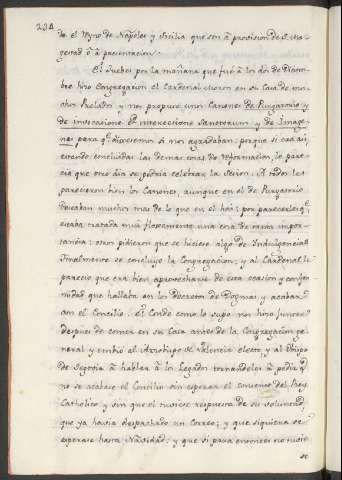 234
do el Reyno de Napoles y Sicilia que son a provision de S. Ma-
gestad o a presentacion.
El Jueves por la mañana que fué a los dos de Diciem-
bre hizo Congregacion el Cardenal Moron en su Casa de mu-
chos Prelados y nos propuso unos Canones de Purgatorio y
de invocatione et intercessione Sanctorum y de Imagi-
nes para que dixesemos si nos agradaban: porque si era asi,
estando concluidas las demas cosas de reformacion, le pare-
cia que otro dia se podria celebrar la Sesion. A todos les
parecieron bien los Canones, aunque en el de Purgatorio
deseaban muchos mas de lo que en él hai: por parecerles que
estaba tratada mui floxamente una cosa de tanta impor-
tancia: otros pidieron que se hiciese algo de Indulgencias
Finalmente se concluyo la Congregacion; y al Cardenal le
parecio que era bien aprovecharse de esta ocasion y confor-
midad que hallaba en los Decretos de Dogmas y acabar
con el Concilio. El Conde como lo supo nos hizo juntar
despues de comer en su Casa antes de la Congregacion ge-
neral y embió al Arzobispo de Valencia electo, y al Obispo
de Segovia a hablar a los Legados tornandoles a pedir que
no se acabase el Concilio sin esperar el consenso del Rey
Catholico y sin que el tuviese respuesta de su voluntad,
que ya havia despachado un Correo; y que siquiera se
esperase hasta Navidad: y que si para entonces no tuvie-
se